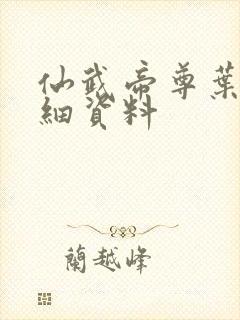 仙武帝尊葉
細資料
蘭越峰